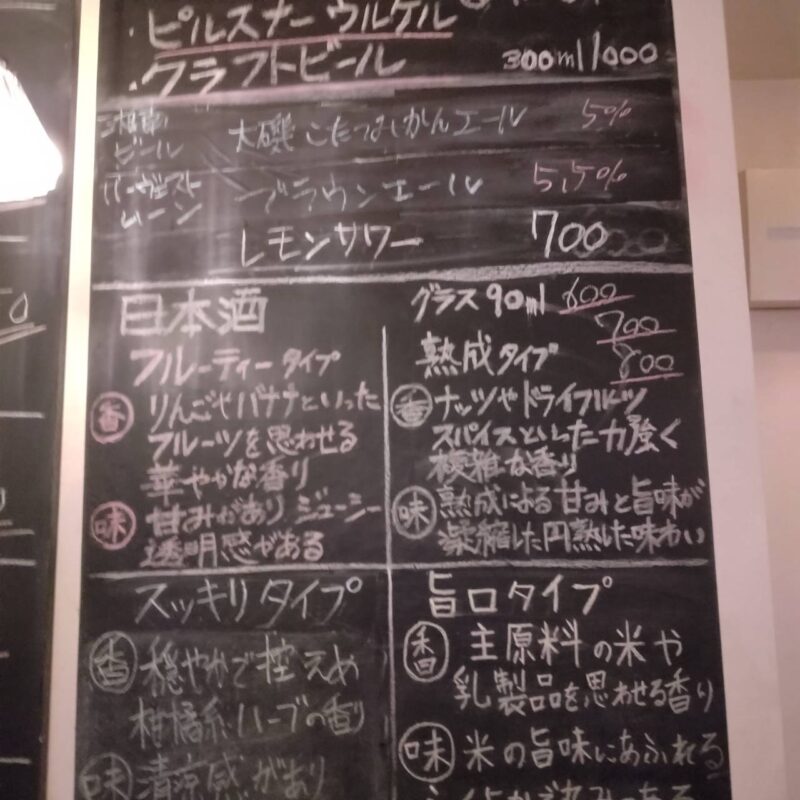 ・ピルスナーウルケル
・クラフトビール 300ml 1000
湘南ビール 大磯こたつみかんエール 5%
ハーヴェストムーン ブラウンエール 5,5%
レモンサワー 700
日本酒 グラス90ml 600
700
800
フルーティータイプ
香 りんごやバナナといった
フルーツを思わせる
華やかな香り
味 甘みがありジューシー
透明感がある
熟成タイプ
香 ナッツやドライフルーツ
スパイスといった力強く
複雑な香り
味 熟成による甘みと旨味が
凝縮した円熟した味わい
スッキリタイプ
香 穏やかで控えめ
柑橘系ハーブの香り
味 清涼感があり
旨口タイプ
香 主原料の米や
乳製品を思わせる香り
味 米の旨味にあふれる